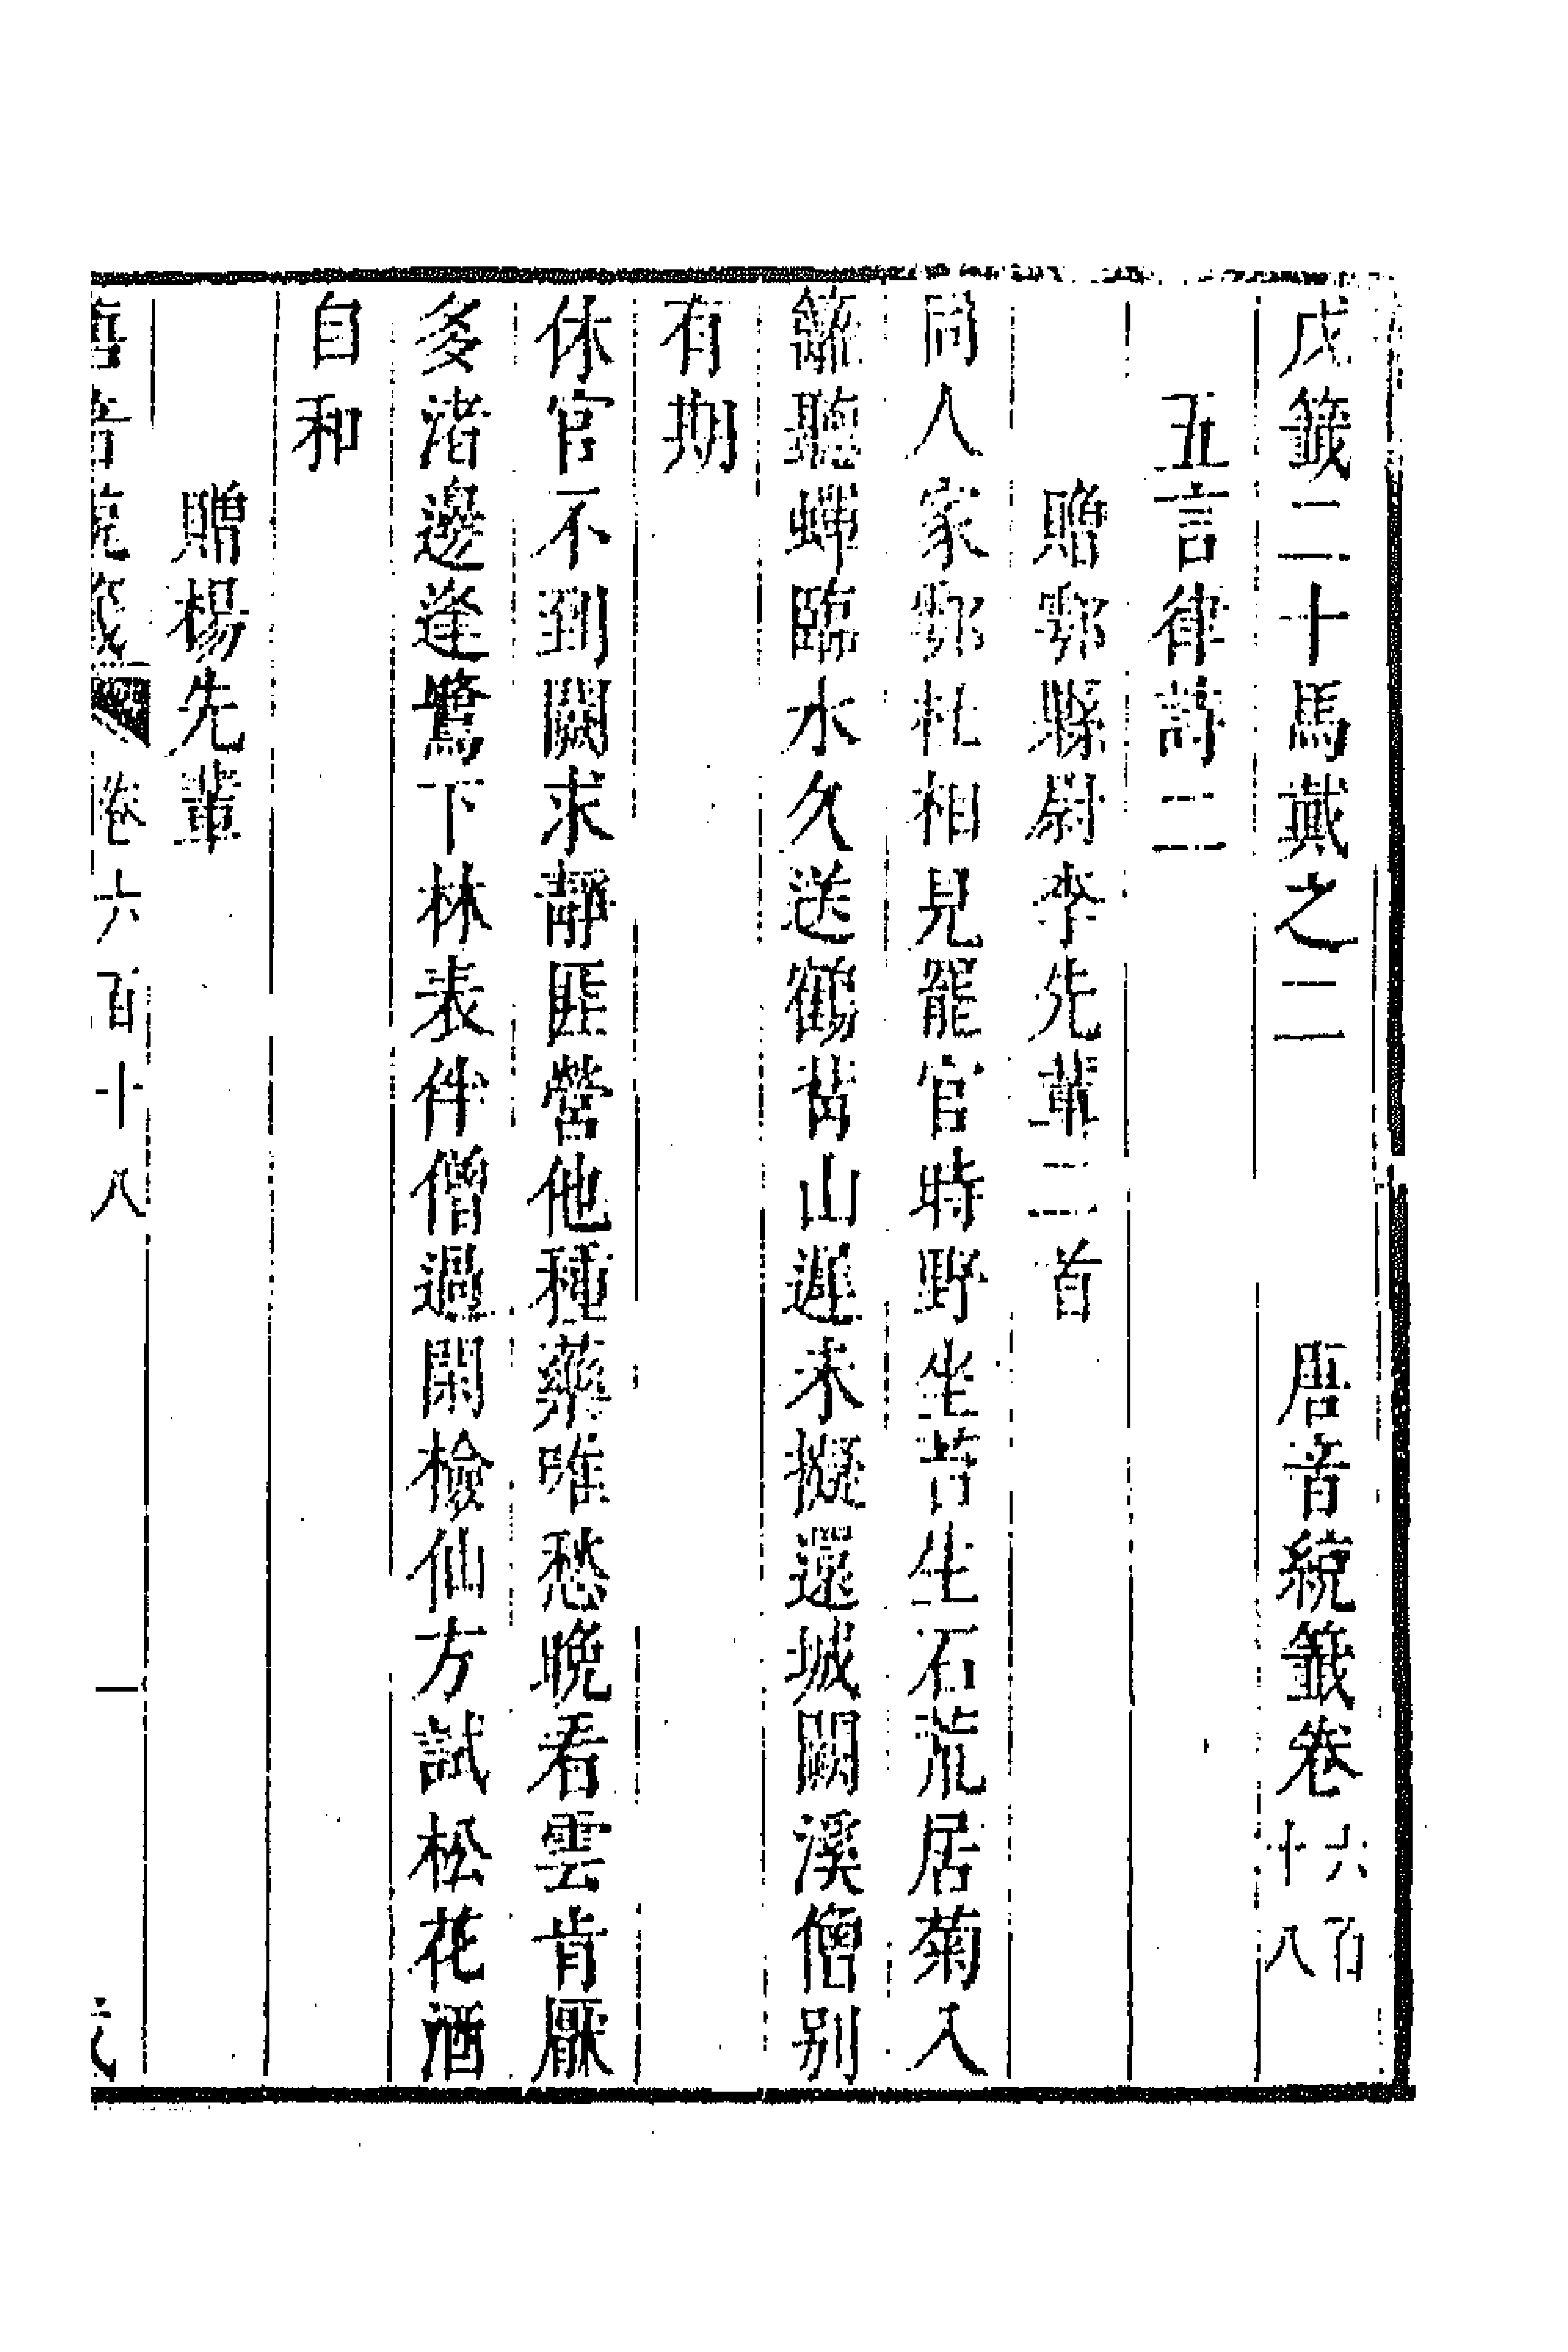 戊籤二十馬戴之二 唐音統籤卷六百十八
五言律詩二
贈鄠縣尉李先輩二首
同人家鄠杜相見罷官時野坐苔生石荒居菊入
籬聽蟬臨水久送鶴背山遲未擬還城闕溪僧別
有期
休官不到闕求靜匪營他種藥唯愁晚看雲肯厭
多渚邊逢鷺下林表伴僧過閑檢仙方試松花酒
自和
贈楊先輩
唐音統籤 卷六百十八 一